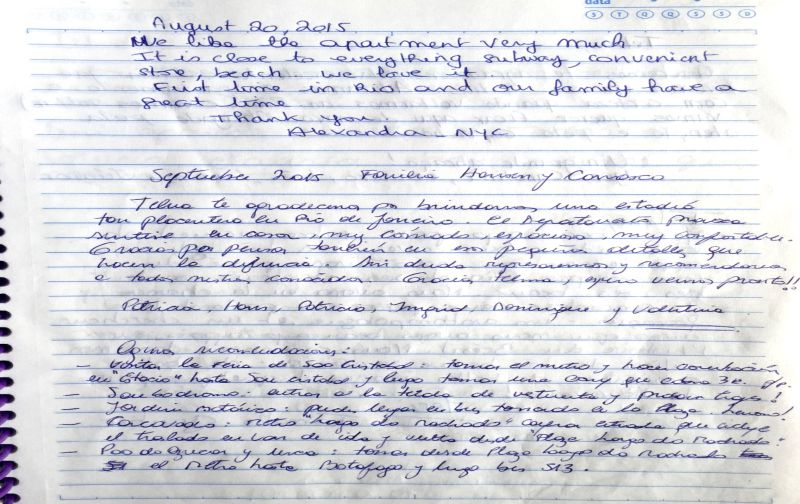 data
S T Q Q S S D
August 20, 2015
We like the apartment very much.
It is close to everything subway, convenient
store, beach. We love it.
First time in Rio! and our family have a
great time
Thank you!
Alexandra - NYC
Septiembre 2015 Familia Hansen y Carrasco
Telma te agradecemos por brindarnos una estadía
tan placentera en Rio de Janeiro. El Departamento provoca
sentirse en casa, muy cómodo, espacioso, muy confortable.
Gracias por pensar también en esos pequeños detalles que
hacen la diferencia. Sin duda regresaremos y recomendaremos
a todos nuestros conocidos. Gracias Telma, espero vernos pronto!!
Patricia, Hans, Patricio, Ingrid, Dominique y Valentina
Algunas recomendaciones:
- Visitar la Feria de Sao Cristobal: tomar el metro y hacer combinación
en "Estacio" hasta Sao Cristobal y luego tomar una que cobra 3
- Sambodromo: entrar a la tienda de vestuario y probarse trajes!
- Jardin Botánico: puedes llegar en bus tomando en la Plaza
- Corcovado: metro "Largo do Machado" comprar entrada que incluye
el traslado en van de ida y vuelta desde "Plaza Largo do Machado"
- Pao de Azucar y Urca: tomar desde Plaza Largo do Machado
el metro hasta Botafogo y luego bus 513.